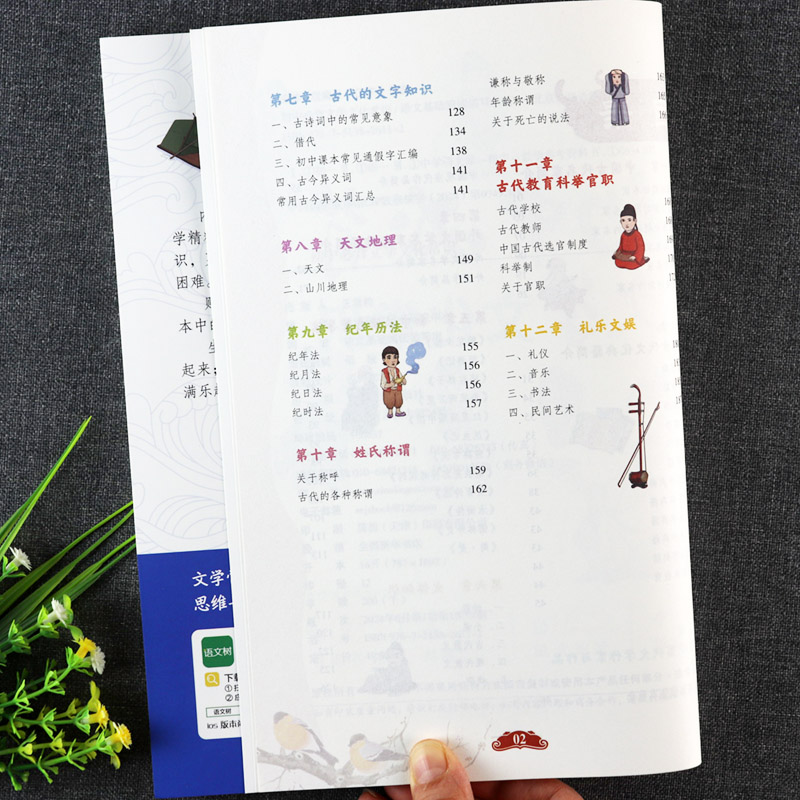 第七章 古代的文字知识
一、古诗词中的常见意象 128
二、借代 134
三、初中课本常见通假字汇编 138
四、古今异义词 141
常用古今异义词汇总 141
第八章 天文地理
一、天文 149
二、山川地理 151
第九章 纪年历法
纪年法 155
纪月法 156
纪日法 156
纪时法 157
第十章 姓氏称谓
关于称呼 159
古代的各种称谓 162
谦称与敬称
年龄称谓
关于死亡的说法
第十一章
古代教育科举官职
古代学校
古代教师
中国古代选官制度
科举制
关于官职
第十二章 礼乐文娱
一、礼仪
二、音乐
三、书法
四、民间艺术
02
学精
识，
困难。
本中的
起来；
满乐
文学
思维
语文树
下载
语文树
ios 版本